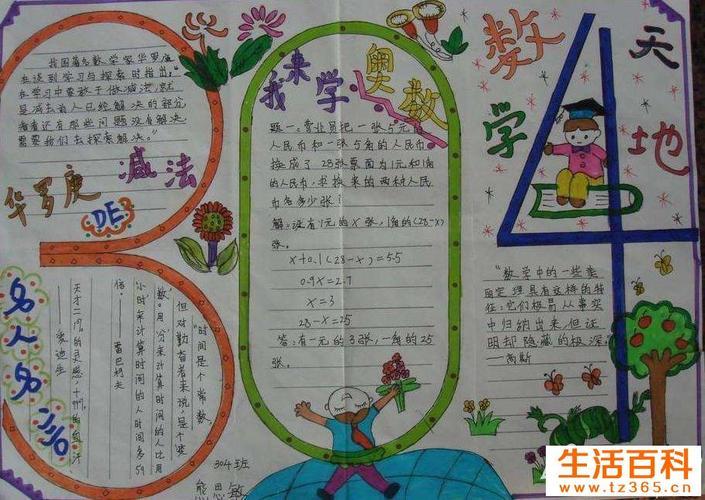 我国著名数学家华罗庚
在谈到学习与探索时指出:"
在学习中要敢于做减法,就
是减去前人已经解决的部分,
看看还有那些问题没有解决,
需要我们去探索解决。"
华罗庚
减法
DE
名人名言
"时间是个常数,
但对勤奋者来说,是个'变
数'。用'分'来计算时间的人比用
'小时'来计算时间的人时间多59
倍。 ——雷巴柯夫
天才=1%的灵感+99%的血汗
——爱迪生
我来学奥数
题一。营业员把一张5元的
人民币和一张5角的人民币
换成了28张票面为1元和1角
的人民币,求换来的两种人民
币各多少张?
解:设有1元的x张,1角的(28-x)
张。
x+0.1(28-x)=5.5
0.9x=2.7
x=3
28-x=25
答:有一元的3张,一角的25
张。
304班
熊思敏
数学天地
"数学中的一些美
丽定理具有这样的特
性:它们极易从事实
中归纳出来,但证
明却隐藏的极深。"
——高斯
生活百科
www.tz365.cn